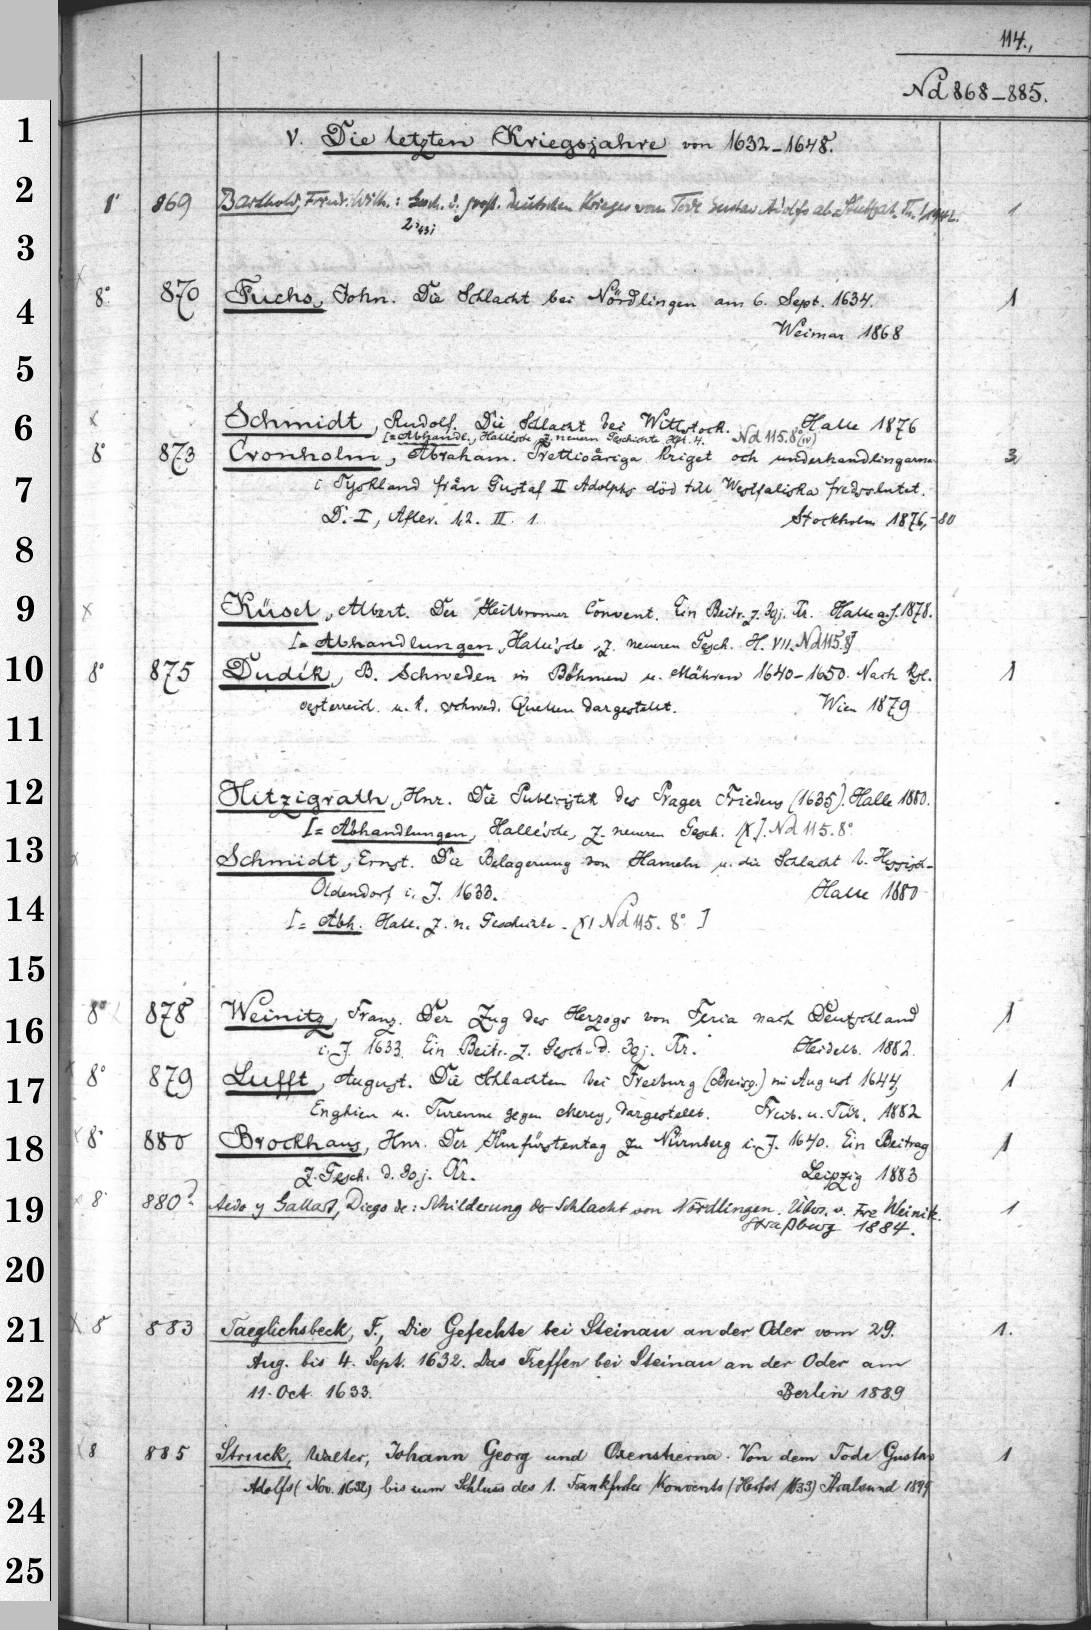 114.,
Nd 868-885.
V. Die letzten Kriegsjahre von 1632-1648.
8° 869 Barthold, Friedr. Wilh.: Gesch. d. groß. deutschen Krieges vom Tode Gustav Adolfs ab. Stuttgart, 1
8° 870 Fuchs, John. Die Schlacht bei Nördlingen am 6. Sept. 1634. 1
Weimar 1868
Schmidt, Rudolf. Die Schlacht bei Wittstock. Halle 1876
[= Abhandl., Hallesche, z. neuern Geschichte Hft. 4. Nd 115.8° (IV)
8° 873 Cronholm, Abraham. Trettioåriga kriget och underhandlingarna 3
i Tyskland från Gustaf II Adolphs död till Westfaliska fredsslutet.
D. I, Afler. 1,2. II. 1. Stockholm 1876,-80
Küsel, Albert. Der Heilbronner Convent. Ein Beitr. z. 30j. Kr. Halle a.S. 1878.
[= Abhandlungen, Halle'sche, z. neueren Gesch. H. VII. Nd 115.8°]
8° 875 Dudík, B. Schweden in Böhmen u. Mähren 1640-1650. Nach kgl. 1
österreich. u. k. schwed. Quellen dargestellt. Wien 1879
Hitzigrath, Hnr. Die Publicistik des Prager Friedens (1635). Halle 1880.
[= Abhandlungen, Halle'sche, z. neueren Gesch. IX]. Nd 115.8°
Schmidt, Ernst. Die Belagerung von Hameln u. die Schlacht b. Hessisch-
Oldendorf i. J. 1633. Halle 1880
[= Abh. Hall. z. n. Geschichte. XI Nd 115. 8° ]
8° 878 Weinitz, Franz. Der Zug des Herzogs von Feria nach Deutschland 1
i. J. 1633. Ein Beitr. z. Gesch. d. 30j. Kr. Heidelb. 1882.
8° 879 Lufft, August. Die Schlachten bei Freiburg (Breisg.) im August 1644, 1
Enghien u. Turenne gegen Mercy, dargestellt. Freib. u. Tüb. 1882
8° 880 Brockhaus, Hnr. Der Kurfürstentag zu Nürnberg i. J. 1640. Ein Beitrag 1
z. Gesch. d. 30j. Kr. Leipzig 1883
8° 880² Aedo y Gallart, Diego de: Schilderung der Schlacht von Nördlingen. Übers. v. Frz Weinitz. 1
Straßburg 1884.
x 8 883 Taeglichsbeck, F., Die Gefechte bei Steinau an der Oder vom 29. 1.
Aug. bis 4. Sept. 1632. Das Treffen bei Steinau an der Oder am
11. Oct. 1633. Berlin 1889
8 885 Struck, Walter, Johann Georg und Oxenstierna. Von dem Tode Gustav 1
Adolfs (Nov. 1632) bis zum Schluss des 1. Frankfurter Konvents (Herbst 1633) Stralsund 1899